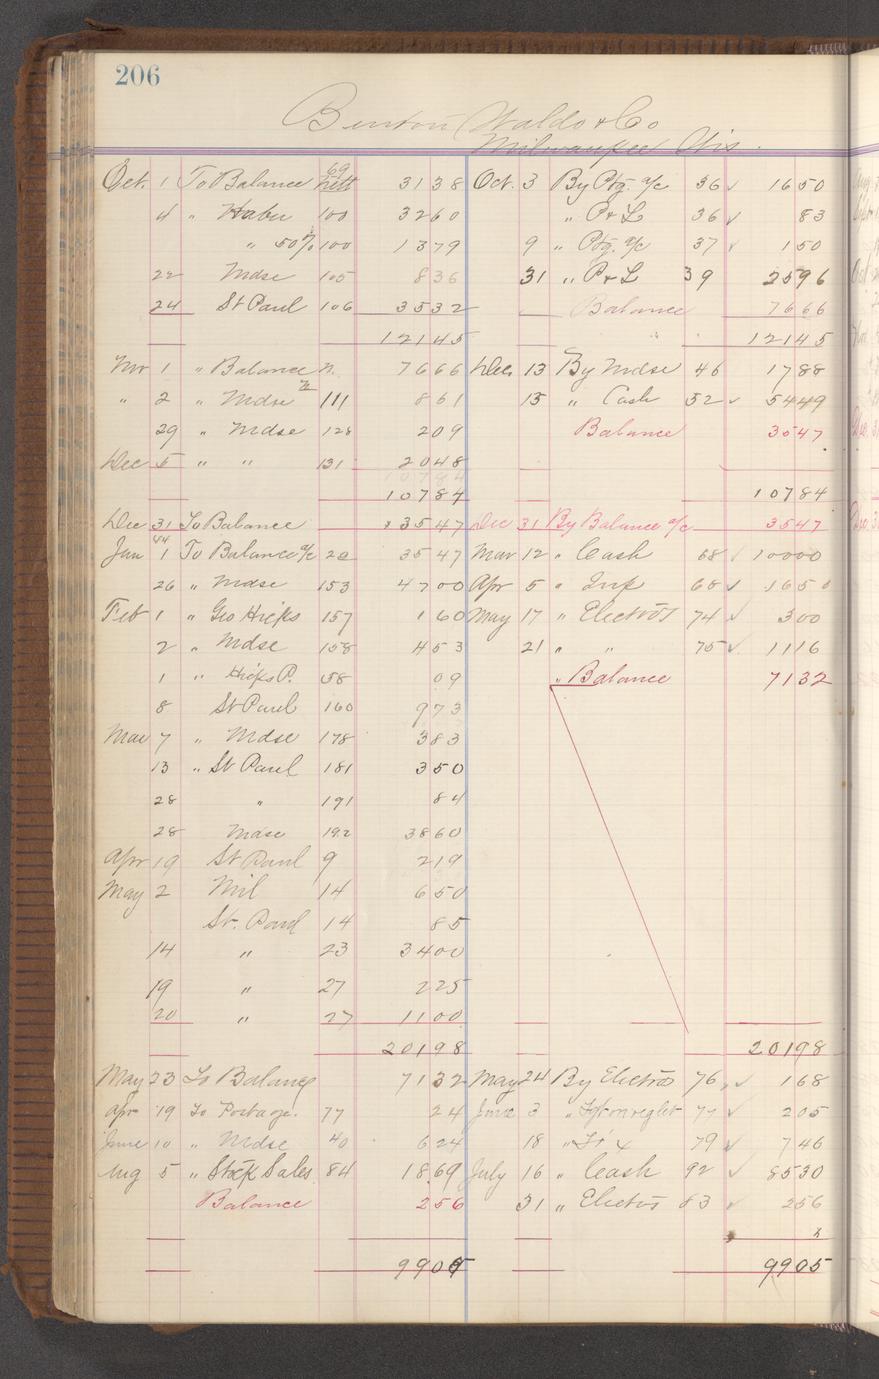 206
Benton Waldo & Co
Milwaukee Wis.
Oct. 1 To Balance 69 nett 3138 Oct. 3 By Ptg. a/c 36 ✓ 1650
4 " 100 3260 " P & L 36 ✓ 83
" 50% 100 1379 9 " Ptg. a/c 37 ✓ 150
22 Mdse 105 836 31 " P & L 39 2596
24 St Paul 106 3532 Balance 7666
12145 12145
Nov 1 " Balance 7666 Dec. 13 By Mdse 46 1788
" 2 " Mdse 111 861 15 " Cash 52 ✓ 5449
29 " Mdse 128 209 Balance 3547
Dec 5 " " 131 2048
10784 10784
Dec 31 To Balance 3547 Dec 31 By Balance a/c 3547
Jan 1 To Balance a/c 20 3547 Mar 12 " Cash 68 ✓ 10000
26 " Mdse 153 4700 Apr 5 " Ink 68 ✓ 1650
Feb 1 " Geo Hicks 157 160 May 17 " Electros 74 ✓ 300
2 " Mdse 158 453 21 " " 75 ✓ 1116
1 " Hicks P. 58 09 " Balance 7132
8 St Paul 160 973
Mar 7 " Mdse 178 383
13 " St Paul 181 350
28 " 191 84
28 Mdse 192 3860
Apr 19 St Paul 9 219
May 2 Mil 14 650
St. Paul 14 85
14 " 23 3400
19 " 27 225
20 " 27 1100
20198 20198
May 23 To Balance 7132 May 24 By Electros 76 ✓ 168
Apr 19 To Postage. 77 24 June 3 " 77 ✓ 205
June 10 " Mdse 40 624 18 " 79 ✓ 746
Aug 5 " Stock Sales 84 1869 July 16 " Cash 92 ✓ 8530
Balance 256 31 " Electros 83 ✓ 256
9905 9905